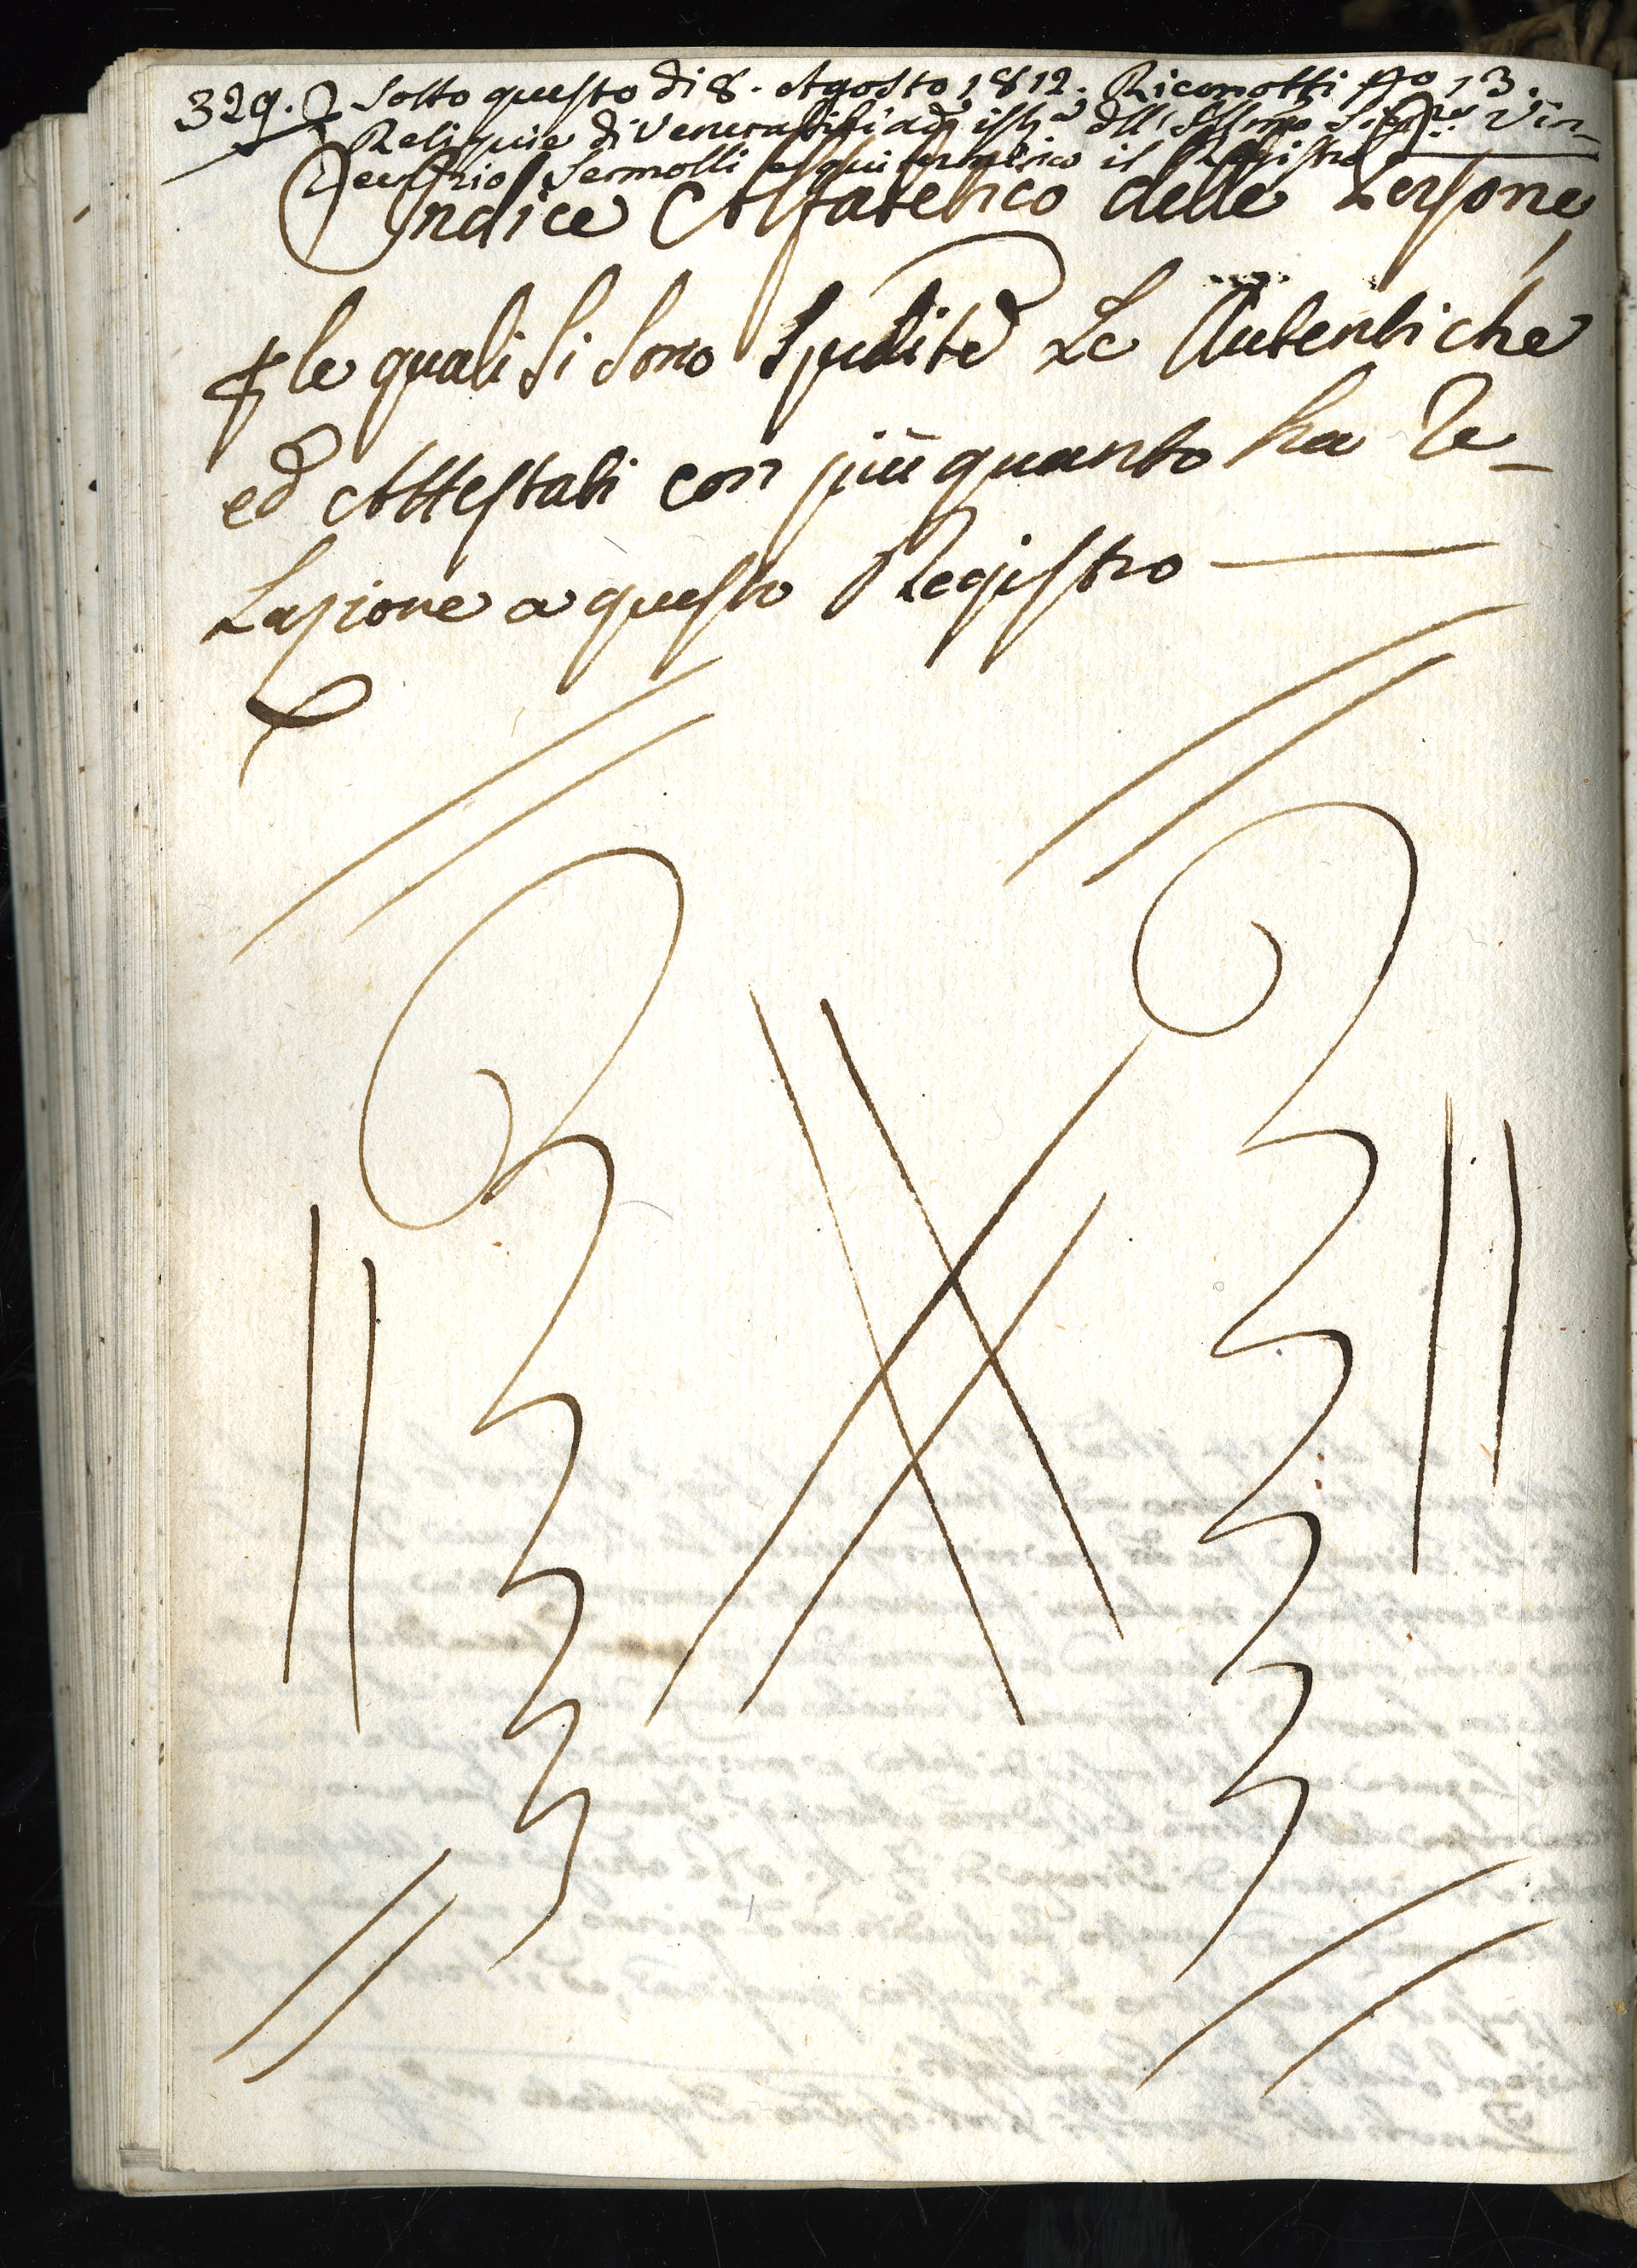 329. Sotto questo di 8. Agosto 1812. Riconobbi No 13.
Reliquie di Venerabili ad
Sermolli il Registro
Indice Alfabetico delle Persone,
P le quali si sono Spedite Le Autentiche
ed Attestati con più quanto ha Re-
Lazione a questo Registro